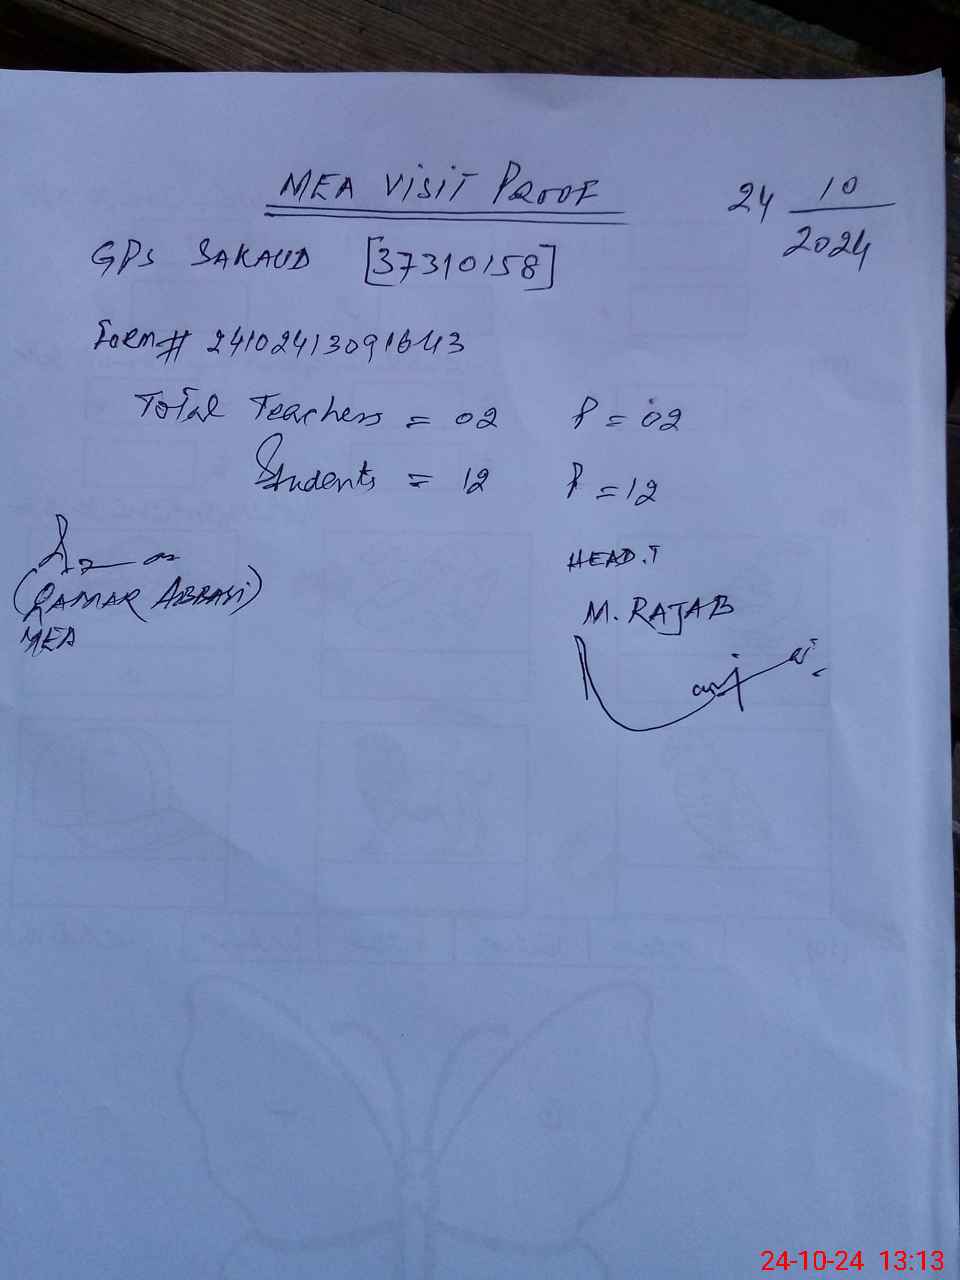 MEA VISIT PROOF
24 10/2024
GPS SAKAUD [37310158]
Form# 24102413091643
Total Teachers = 02 P = 02
Students = 12 P = 12
HEAD.T
(QAMAR ABBASI)
M. RAJAB
MEA
24-10-24 13:13